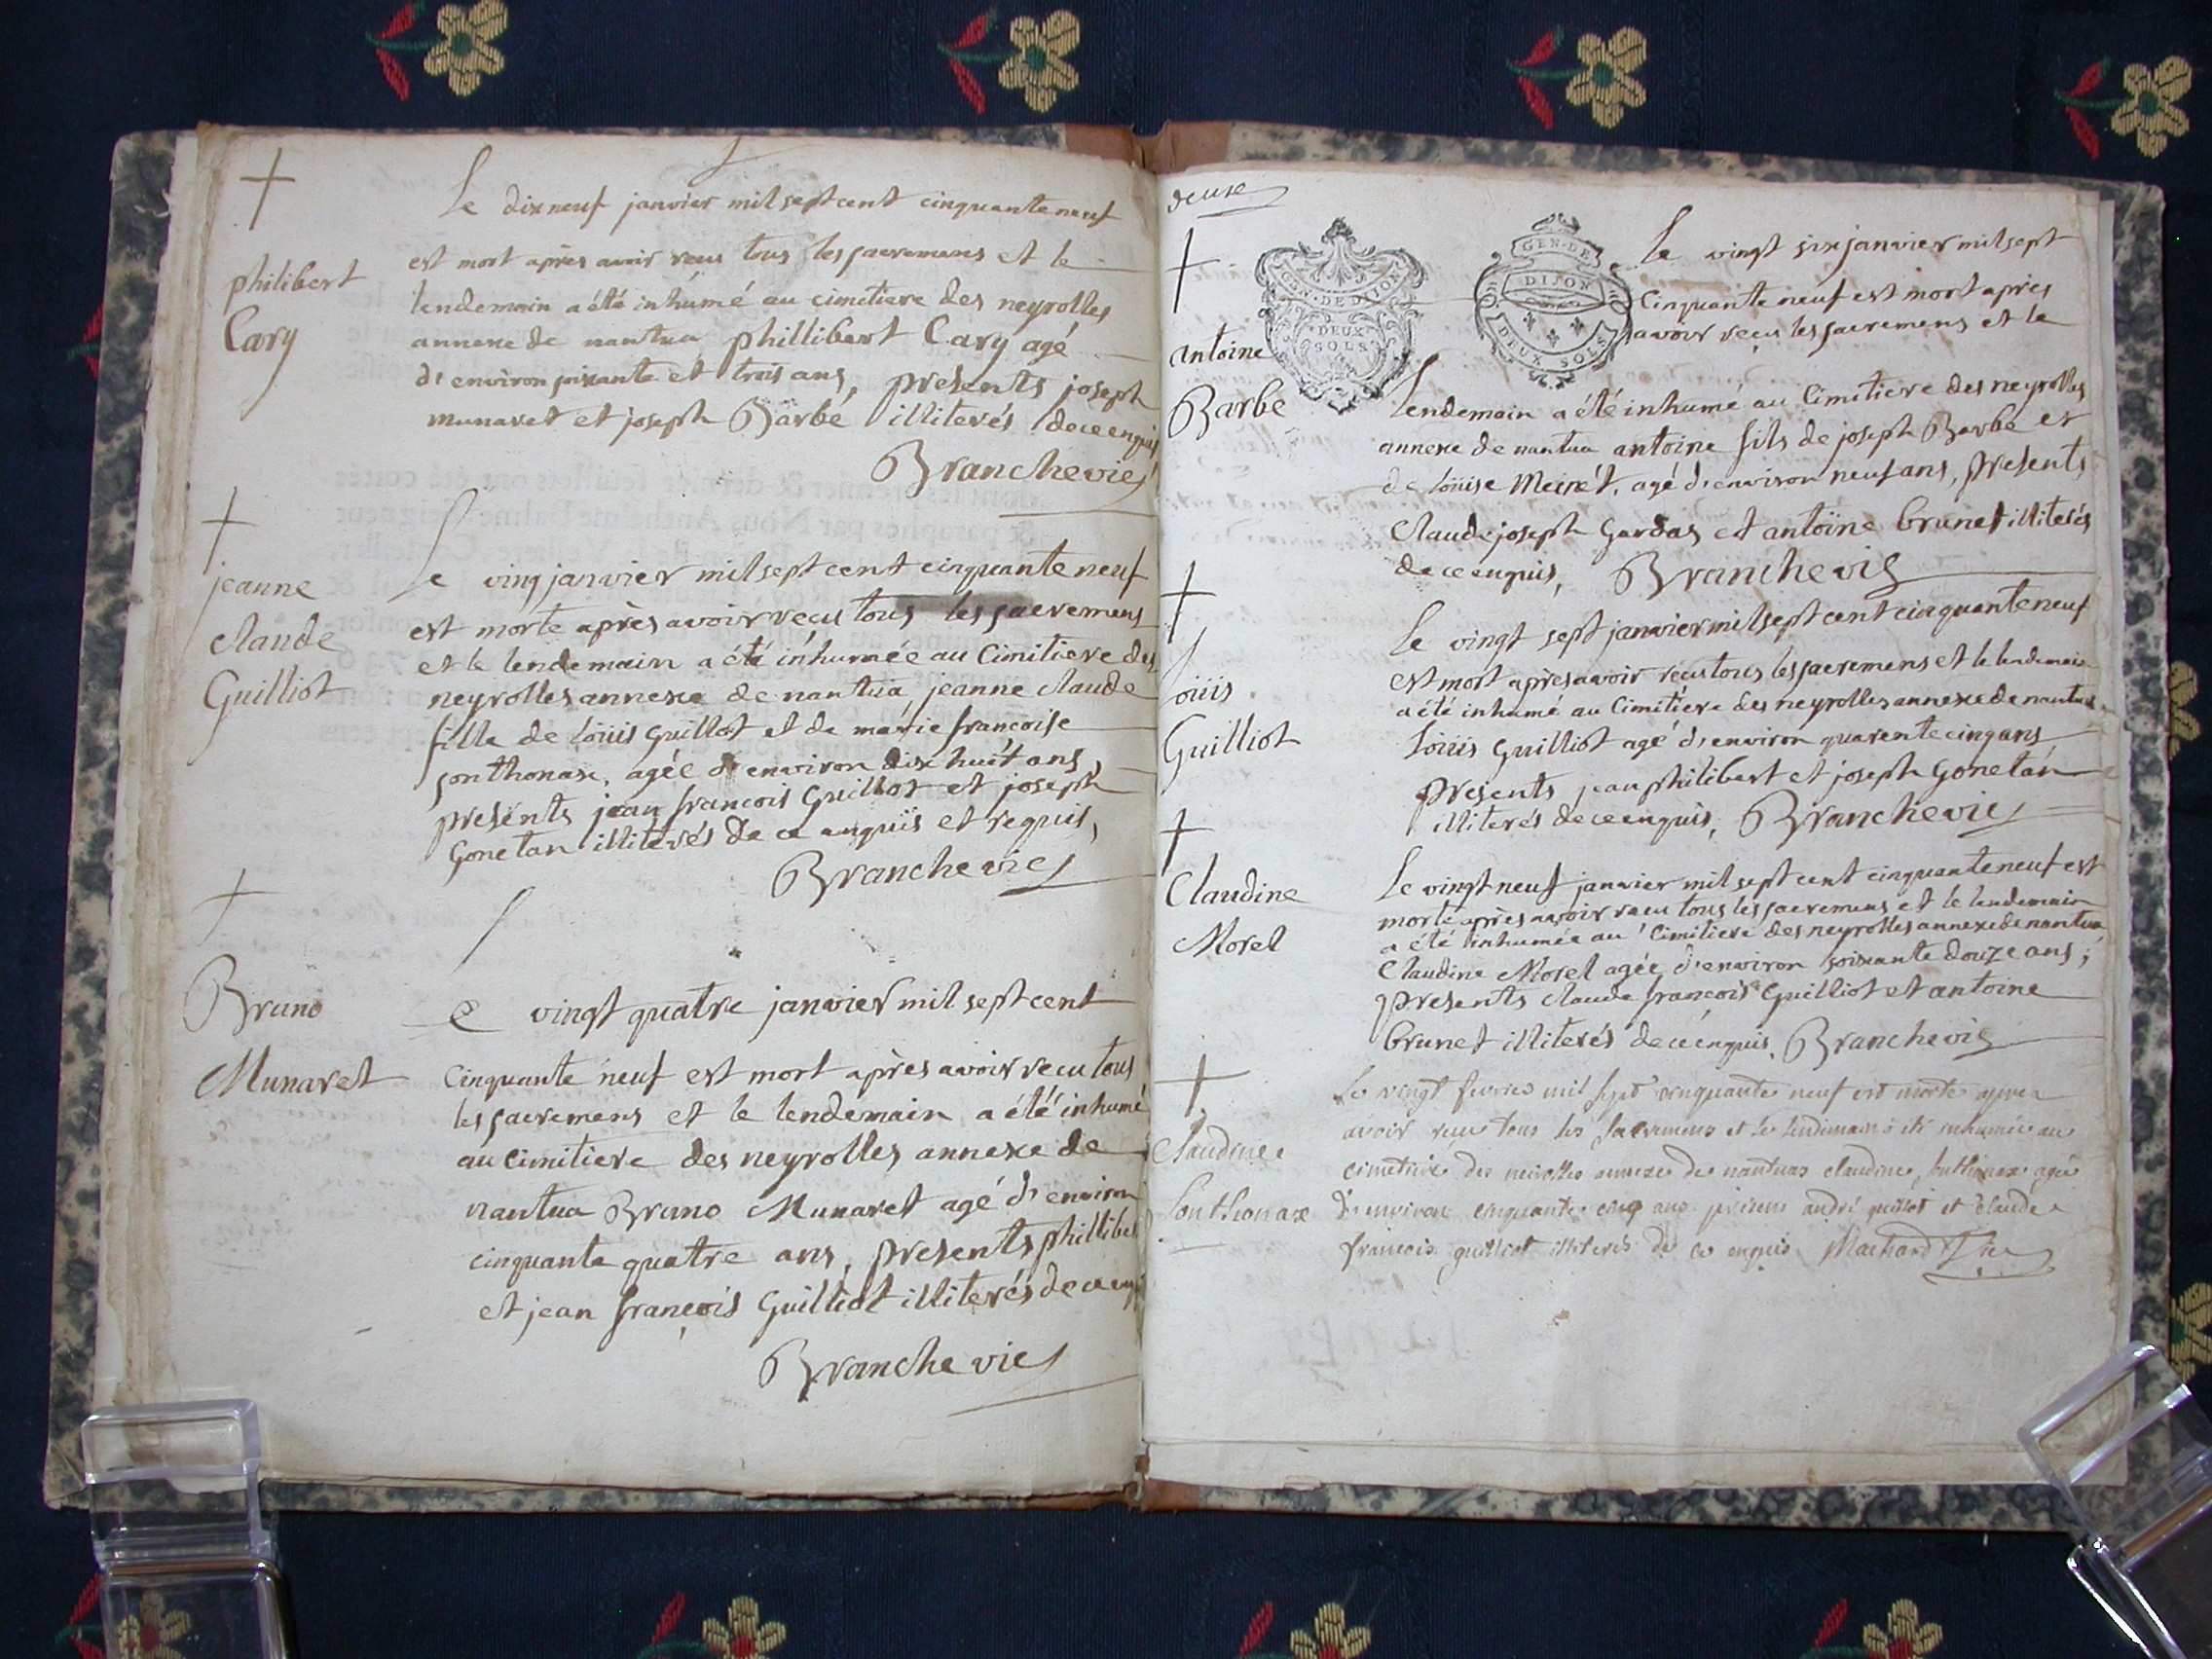 philibert
Cary
Le dix neuf janvier mil sept cent cinquante neuf
est mort après avoir recu tous les sacremens et le
lendemain a été inhumé au cimetiere des neyrolles
annexe de nantua phillibert Cary agé
d'environ soixante et trois ans, presents joseph
munaret et joseph Barbé illiterés de ce enquis
Branche vic
jeanne
claude
Guilliot
Le ving janvier mil sept cent cinquante neuf
est morte après avoir reçu tous les sacremens
et le lendemain a été inhumée au Cimitiere des
neyrolles annexe de nantüa, jeanne claude
fille de loüis Guillot et de marie francoise
sonthonax, agée d'environ dix huit ans,
presents jean francois Guillot et joseph
Gonetan illiterés de ce anquis et requis,
Branche vic
Bruno
Munaret
Le vingt quatre janvier mil sept cent
Cinquante neuf est mort après avoir recu tous
les sacremens et le lendemain a été inhumé
au cimitiere des neyrolles annexe de
nantua Bruno Munaret agé d'environ
cinquante quatre ans, presents phillibe
et jean françois Guilliot illiterés de ce enq
Branche vic
deuxe
GEN·DE DIJON
DEUX
SOLS
GEN·DE
DIJON
DEUX SOLS
antoine
Barbe
Le vingt six janvier mil sept
Cinquante neuf est mort apres
avoir reçu les sacremens et le
lendemain a été inhumé au Cimitiere des neyrolles
annexe de nantua antoine fils de joseph Barbe et
de loüise Meirét, agé d'environ neuf ans, presents
Claude joseph Gardas et antoine brunet illiterés
de ce enquis, Branche vic
Loüis
Guilliot
Le vingt sept janvier mil sept cent cinquante neuf
est mort après avoir recu tous les sacremens et le lendemain
a été inhumé au Cimitiere des neyrolles annexe de nantua
Loüis Guilliot agé d'environ quarente cinq ans
presents jean philibert et joseph Gonetan
illiterés de ce enquis, Branche vic
Claudine
Morel
Le vingt neuf janvier mil sept cent cinquante neuf est
morte après avoir recu tous les sacremens et le lendemain
a été inhumée au Cimitiere des neyrolles annexe de nantua,
Claudine Morel agée d'environ soixante douze ans;
presents claude françois Guilliot et antoine
brunet illiterés de ce enquis, Branche vic
Claudine
Sonthonax
Le vingt fevrier mil sept cinquante neuf est morte apres
avoir recu tous les sacremens et le lendemain a été inhumée au
cimetiere des neirolles annexe de nantuas claudine, sonthonax agée
d'environ cinquante cinq ans presens andré guilliot et claude
francois guilliot illiterés de ce enquis Machard Vic